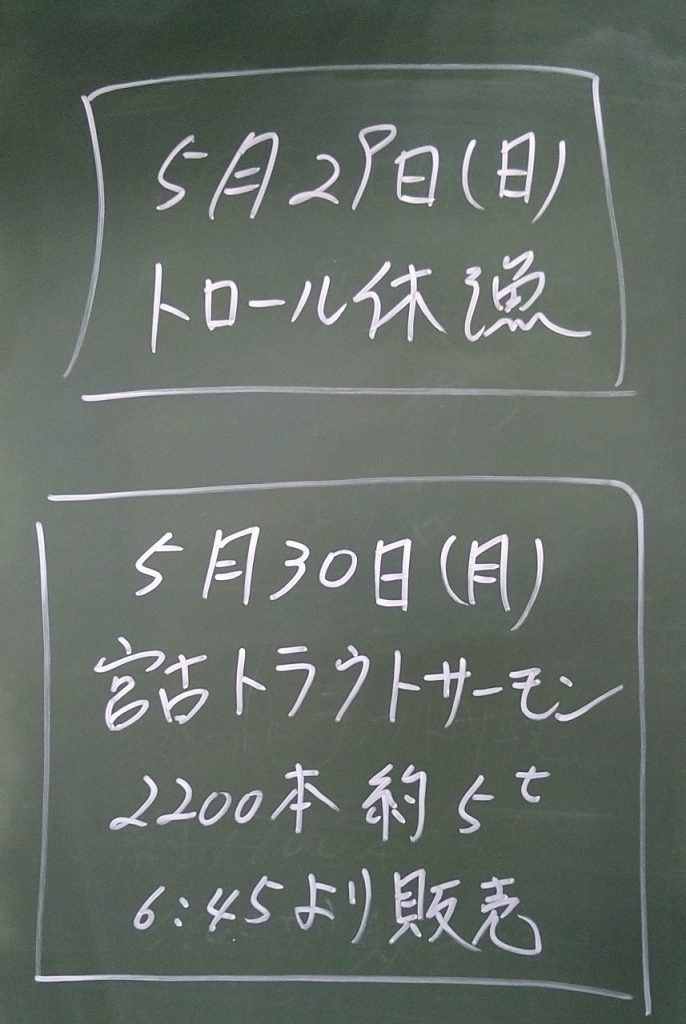 5月29日(日)
トロール休漁
5月30日(月)
宮古トラウトサーモン
2200本 約5t
6:45より販売